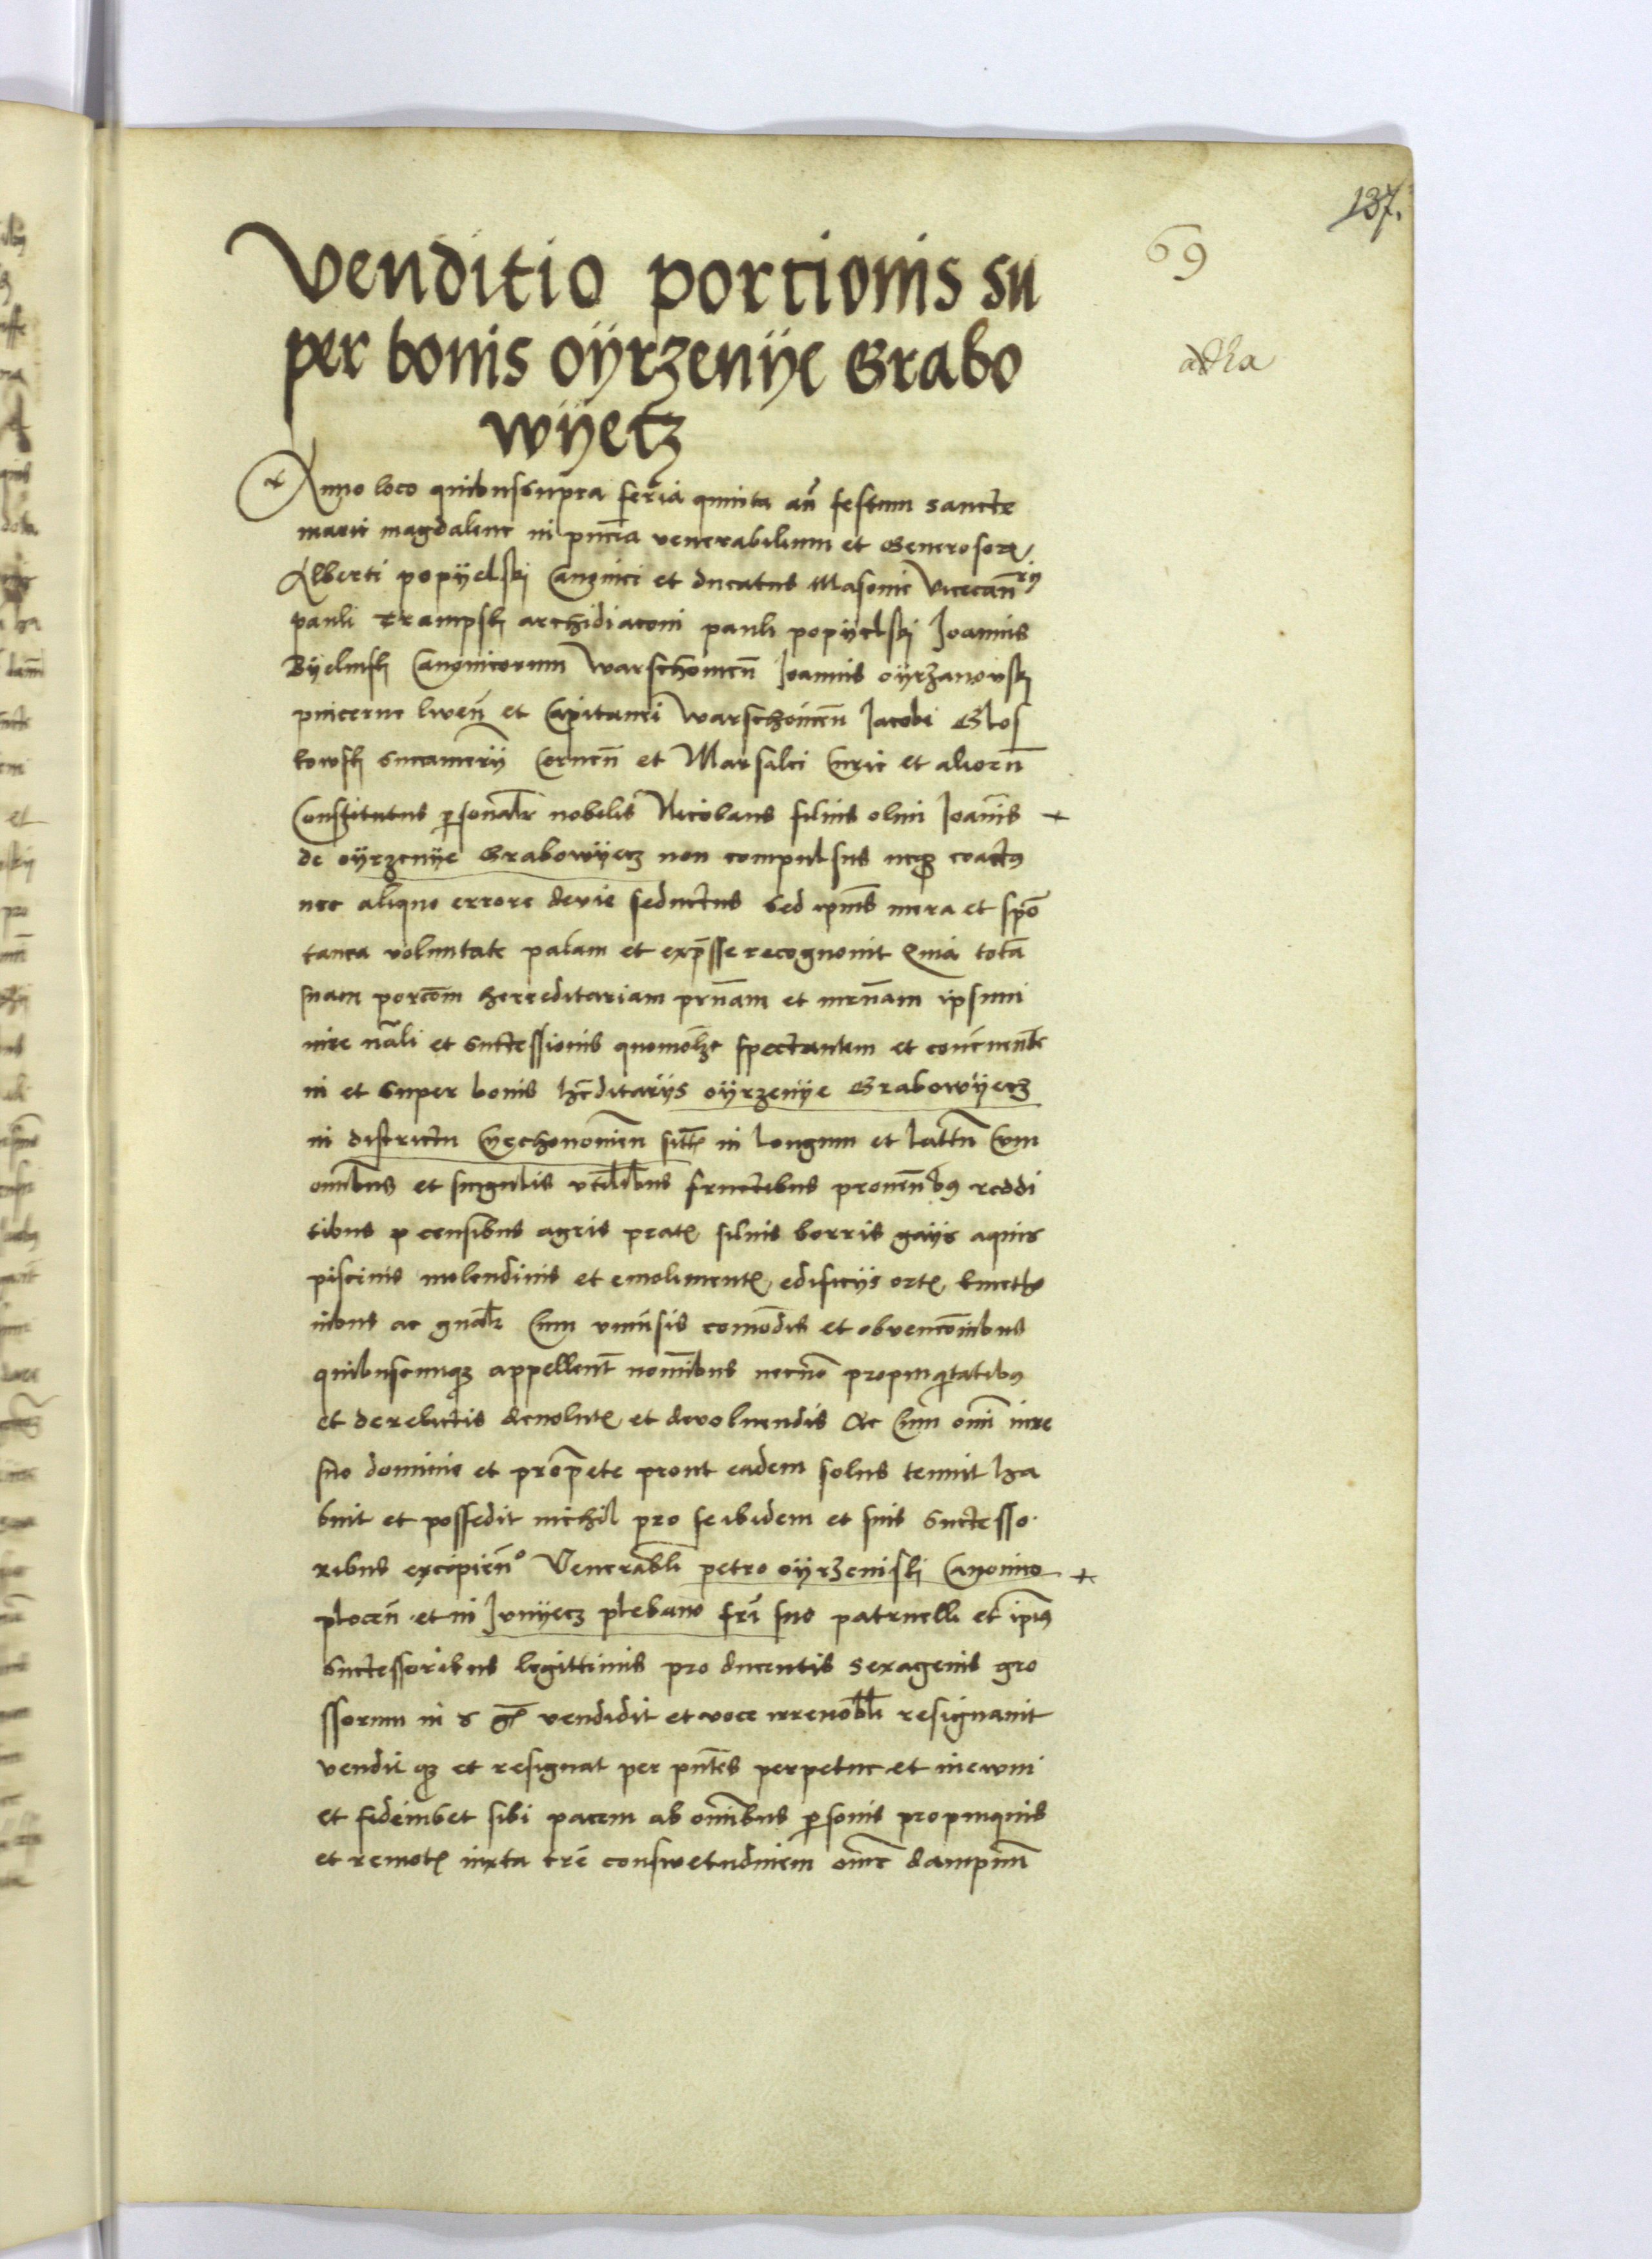 137.
69
Venditio portionis su
per bonis oÿrzenÿe Grabo
wÿecz
Anno loco quibus supra feria quinta an̄ festum sancte
marie magdalene in pn̄cia venerabilium et Generosorꝝ
Alberti popÿelskj Canonici et ducatus Masouie Vicecan̄rÿ
pauli Trampskj archidiaconi pauli popÿelskj Joannis
Bÿelinskj Canonicorum Warschouien̄ Joannis oÿrzanowskj
pincerne liuen̄ et Capitanei Warschouien̄ Jacobi Glos
kowskj Succamerÿ Cernen̄ et Marsalci Curie et aliorū
Constitutus ꝑsonalr̄ nobilis Nicolaus filius olim Joan̄is
de oÿrzenÿe Grabowÿecz non compulsus neqꝫ coactꝰ
nec aliquo errore deuie seductus Sed ipius mera et spō
tanea voluntate palam et exp̄sse recognouit Quia totā
suam porcōm hereditariam pr̄nam et mr̄nam ipsum
iure nāli et successionis quomolꝫt spectantem et conuenn̄te
in et super bonis hr̄ditarÿs oÿrzenÿe Grabowÿecz
in districtu Cyechonouien̄ sitꝭ in longum et latū Cum
omībus et singulis vtilibus fructibus prouenn̄bꝰ reddi
tibus censibus agris pratꝭ siluis borris gaÿs aquis
piscinis molendinis et emolimentꝭ edificÿs ortꝭ kmetho
nibus ac gnālr̄ Cum vniuersis comodis et obuencōnibus
quibuscunqꝫ appellent̄ nomībus necnō propinquitatibꝰ
et derelictis deuolutꝭ et deuoluendis Ac Cum omī iure
suo dominio et prop̄ete prout eadem solus tenuit ha
buit et possedit nichil pro se ibidem et suis Successo
ribus excipien̄º Venerabli petro oÿrzenskj Canonico
plocen̄ et in Jvnÿecz plebano frī suo patrueli et ipiꝰ
Successoribus legittimis pro ducentis sexagenis gro
ssorum in gꝭ vendidit et voce irreuobli resignauit
vendit qꝫ et resignat per pn̄tes perpetue et in ewm
et fideiubet sibi pacem ab omībus ꝑsonis propinquis
et remotꝭ iuxta trē conswetudinem omē dampnū